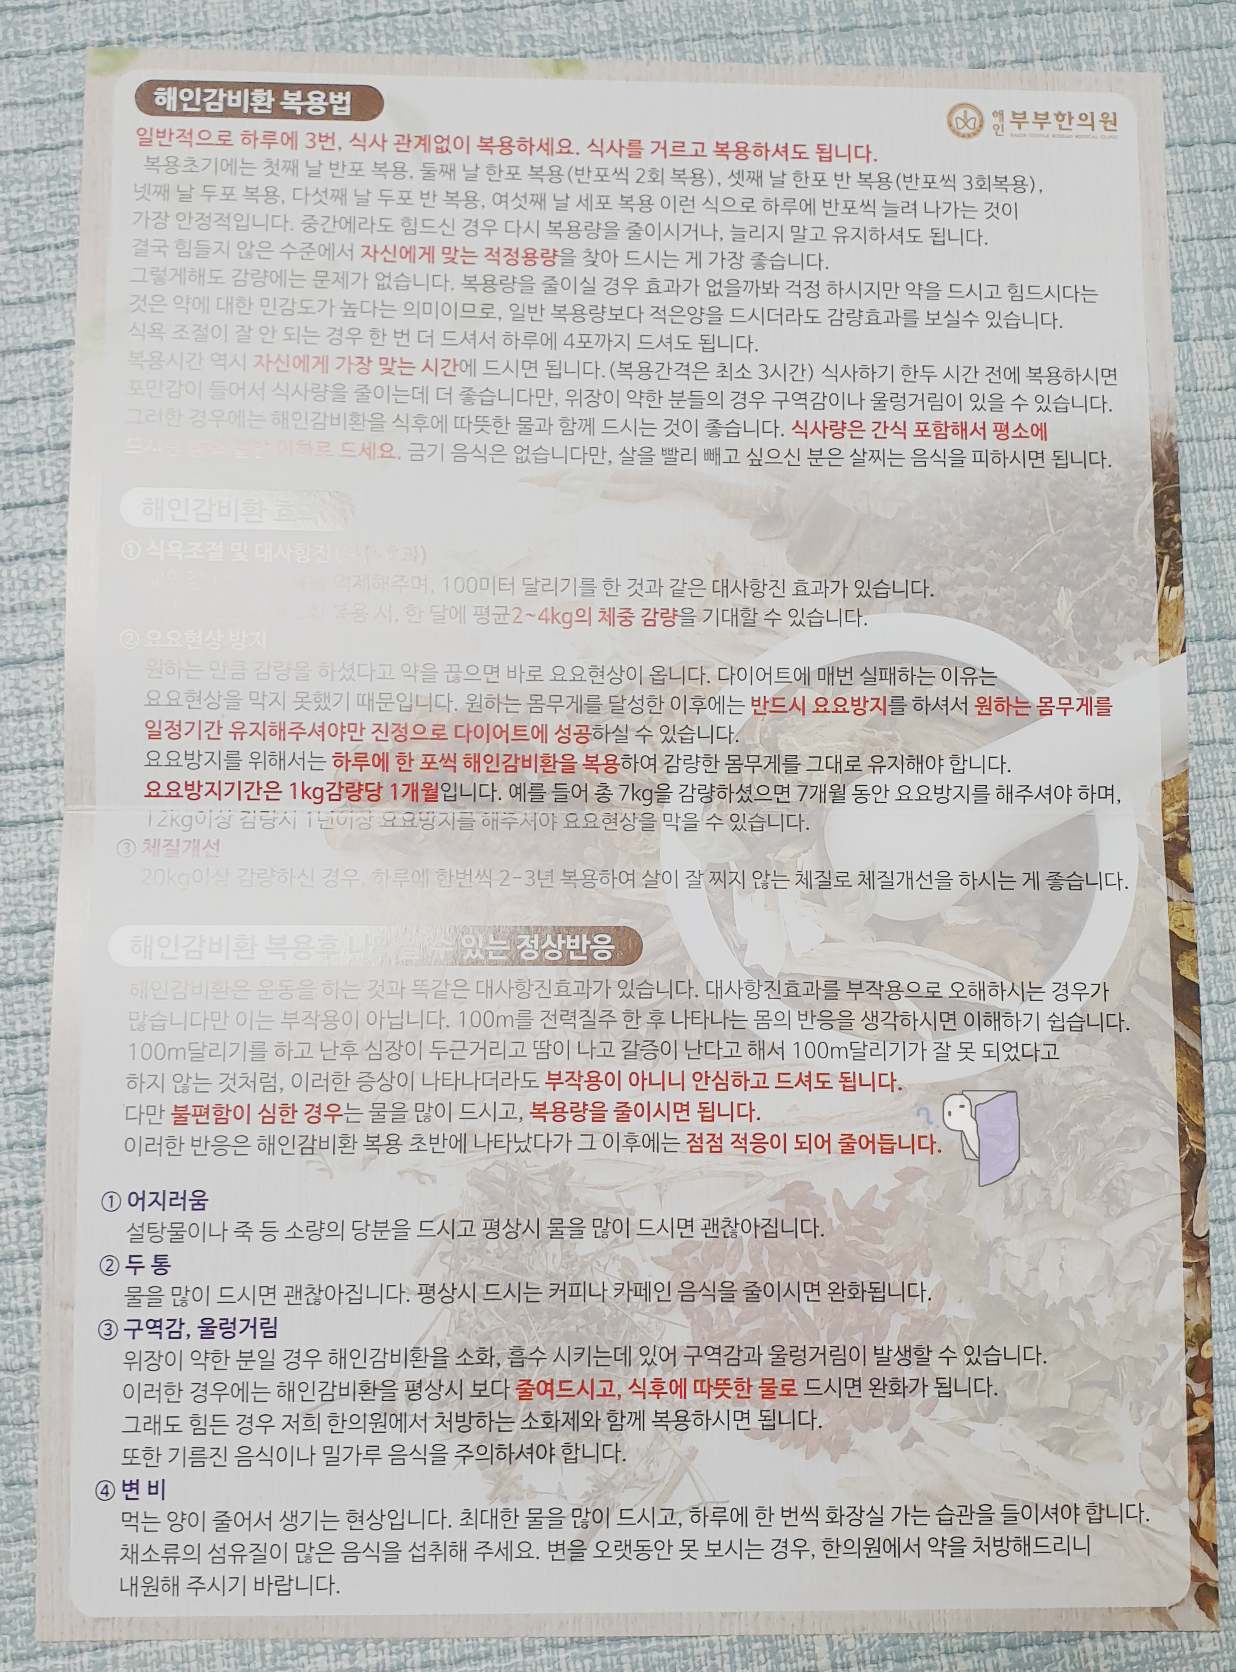 해인감비환 복용법
해인 부부한의원
일반적으로 하루에 3번, 식사 관계없이 복용하세요. 식사를 거르고 복용하셔도 됩니다.
복용초기에는 첫째 날 반포 복용, 둘째 날 한포 복용(반포씩 2회 복용), 셋째 날 한포 반 복용(반포씩 3회복용),
넷째 날 두포 복용, 다섯째 날 두포 반 복용, 여섯째 날 세포 복용 이런 식으로 하루에 반포씩 늘려 나가는 것이
가장 안정적입니다. 중간에라도 힘드신 경우 다시 복용량을 줄이시거나, 늘리지 말고 유지하셔도 됩니다.
결국 힘들지 않은 수준에서 자신에게 맞는 적정용량을 찾아 드시는 게 가장 좋습니다.
그렇게해도 감량에는 문제가 없습니다. 복용량을 줄이실 경우 효과가 없을까봐 걱정 하시지만 약을 드시고 힘드시다는
것은 약에 대한 민감도가 높다는 의미이므로, 일반 복용량보다 적은양을 드시더라도 감량효과를 보실수 있습니다.
식욕 조절이 잘 안 되는 경우 한 번 더 드셔서 하루에 4포까지 드셔도 됩니다.
복용시간 역시 자신에게 가장 맞는 시간에 드시면 됩니다.(복용간격은 최소 3시간) 식사하기 한두 시간 전에 복용하시면
포만감이 들어서 식사량을 줄이는데 더 좋습니다만, 위장이 약한 분들의 경우 구역감이나 울렁거림이 있을 수 있습니다.
그러한 경우에는 해인감비환을 식후에 따뜻한 물과 함께 드시는 것이 좋습니다. 식사량은 간식 포함해서 평소에
드시는 이하로 드세요. 금기 음식은 없습니다만, 살을 빨리 빼고 싶으신 분은 살찌는 음식을 피하시면 됩니다.
해인감비환
① 식욕조절 및 대사항진
억제해주며, 100미터 달리기를 한 것과 같은 대사항진 효과가 있습니다.
복용 시, 한 달에 평균2~4kg의 체중 감량을 기대할 수 있습니다.
② 요요현상 방지
원하는 만큼 감량을 하셨다고 약을 끊으면 바로 요요현상이 옵니다. 다이어트에 매번 실패하는 이유는
요요현상을 막지 못했기 때문입니다. 원하는 몸무게를 달성한 이후에는 반드시 요요방지를 하셔서 원하는 몸무게를
일정기간 유지해주셔야만 진정으로 다이어트에 성공하실 수 있습니다.
요요방지를 위해서는 하루에 한 포씩 해인감비환을 복용하여 감량한 몸무게를 그대로 유지해야 합니다.
요요방지기간은 1kg감량당 1개월입니다. 예를 들어 총 7kg을 감량하셨으면 7개월 동안 요요방지를 해주셔야 하며,
12kg이상 감량시 1년이상 요요방지를 해주셔야 요요현상을 막을 수 있습니다.
③ 체질개선
20kg이상 감량하신 경우, 하루에 한번씩 2-3년 복용하여 살이 잘 찌지 않는 체질로 체질개선을 하시는 게 좋습니다.
해인감비환 복용후 수 있는 정상반응
해인감비환은 운동을 하는 것과 똑같은 대사항진효과가 있습니다. 대사항진효과를 부작용으로 오해하시는 경우가
많습니다만 이는 부작용이 아닙니다. 100m를 전력질주 한 후 나타나는 몸의 반응을 생각하시면 이해하기 쉽습니다.
100m달리기를 하고 난후 심장이 두근거리고 땀이 나고 갈증이 난다고 해서 100m달리기가 잘 못 되었다고
하지 않는 것처럼, 이러한 증상이 나타나더라도 부작용이 아니니 안심하고 드셔도 됩니다.
다만 불편함이 심한 경우는 물을 많이 드시고, 복용량을 줄이시면 됩니다.
이러한 반응은 해인감비환 복용 초반에 나타났다가 그 이후에는 점점 적응이 되어 줄어듭니다.
?
① 어지러움
설탕물이나 죽 등 소량의 당분을 드시고 평상시 물을 많이 드시면 괜찮아집니다.
② 두 통
물을 많이 드시면 괜찮아집니다. 평상시 드시는 커피나 카페인 음식을 줄이시면 완화됩니다.
③ 구역감, 울렁거림
위장이 약한 분일 경우 해인감비환을 소화, 흡수 시키는데 있어 구역감과 울렁거림이 발생할 수 있습니다.
이러한 경우에는 해인감비환을 평상시 보다 줄여드시고, 식후에 따뜻한 물로 드시면 완화가 됩니다.
그래도 힘든 경우 저희 한의원에서 처방하는 소화제와 함께 복용하시면 됩니다.
또한 기름진 음식이나 밀가루 음식을 주의하셔야 합니다.
④ 변 비
먹는 양이 줄어서 생기는 현상입니다. 최대한 물을 많이 드시고, 하루에 한 번씩 화장실 가는 습관을 들이셔야 합니다.
채소류의 섬유질이 많은 음식을 섭취해 주세요. 변을 오랫동안 못 보시는 경우, 한의원에서 약을 처방해드리니
내원해 주시기 바랍니다.